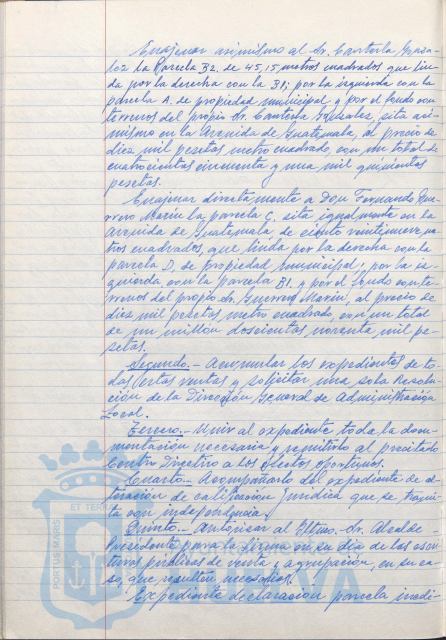 Enajenar asimismo al Sr. Cantería Gonza-
lez la Parcela B2. de 45,15, metros cuadrados que lin-
da por la derecha con la B1; por la izquierda con la
parcela A. de propiedad municipal y por el fondo con
terrenos del propio Sr. Cantería González, sita asi-
mismo en la Avenida de Guatemala, al precio de
diez mil pesetas metro cuadrado, con un total de
cuatrocientas cincuenta y una mil quinientas
pesetas.
Enajenar directamente a Don Fernando Gue-
rrero Marín la parcela C, sita igualmente en la
avenida de Guatemala de ciento veintinueve me-
tros cuadrados, que linda por la derecha con la
parcela D, de propiedad municipal; por la iz-
quierda con la parcela B1. y por el fondo con te-
rrenos del propio Sr. Guerrero Marín, al precio de
diez mil pesetas, metro cuadrado, con un total
de un millón doscientas noventa mil pe-
setas.
Segundo.- Acumular los expedientes de to-
das estas ventas y solicitar una sola Resolu-
ción de la Dirección General de Administración
Local.
Tercero.- Unir al expediente toda la docu-
mentación necesaria y remitirlo al precitado
Centro Directivo a los efectos oportunos.
Cuarto.- Acompañarlo del expediente de al-
teración de calificación jurídica que se trami-
ta con independencia.
Quinto.- Autorizar al Iltmo. Sr. Alcalde
Presidente para la firma en su día de las escri-
turas públicas de venta y agrupación, en su ca-
so, que resulten necesarias.
Expediente declaración parcela inedi-
PORTUS MARIS
ET TERRAE